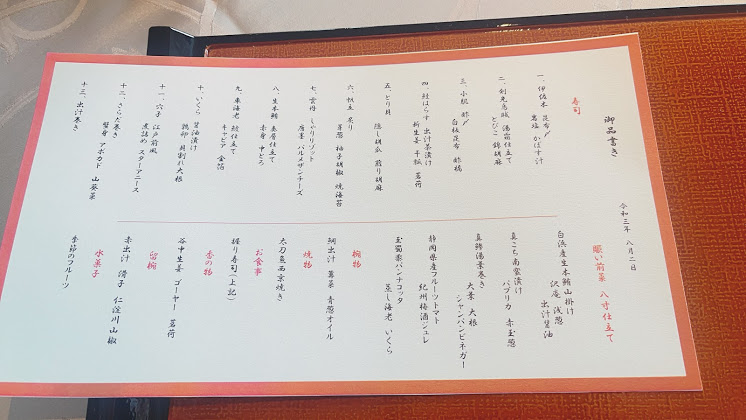 御品書き
令和三年 八月二日
寿司
一、伊佐木 昆布〆
岩塩 かぼす汁
二、剣先烏賊 湯霜仕立て
とびこ 錦胡麻
三、小肌 酢〆
白板昆布 酢橘
四、鮭はらす 出汁茶漬け
新生姜 干瓢 茗荷
五、とり貝
隠し胡瓜 煎り胡麻
六、帆立 炙り
芽葱 柚子胡椒 焼海苔
七、雲丹 しゃりリゾット
唐墨 パルメザンチーズ
八、生本鮪 

赤身 中とろ
九、車海老 鮨仕立て
キャビア 金箔
十、いくら 醤油漬け
鶉卵 貝割れ大根
十一、穴子 江戸前風
煮詰め スターアニース
十二、さらだ巻き
蟹身 アボカド 山葵菜
十三、出汁巻き
賑い前菜 八寸仕立て
白浜産生本鮪山掛け
沢庵 浅葱 出汁醤油
真こち南蛮漬け
パプリカ 赤玉葱
真鯵湯葉巻き
大葉 大根 シャンパンビネガー
静岡県産フルーツトマト
紀州梅酒ジュレ
玉蜀黍パンナコッタ
蒸し海老 いくら
椀物
鯛出汁 蓴菜 青葱オイル
焼物
太刀魚西京焼き
お食事
握り寿司(上記)
香の物
谷中生姜 ゴーヤー 茗荷
留椀
赤出汁 滑子 仁淀川山椒
水菓子
季節のフルーツ